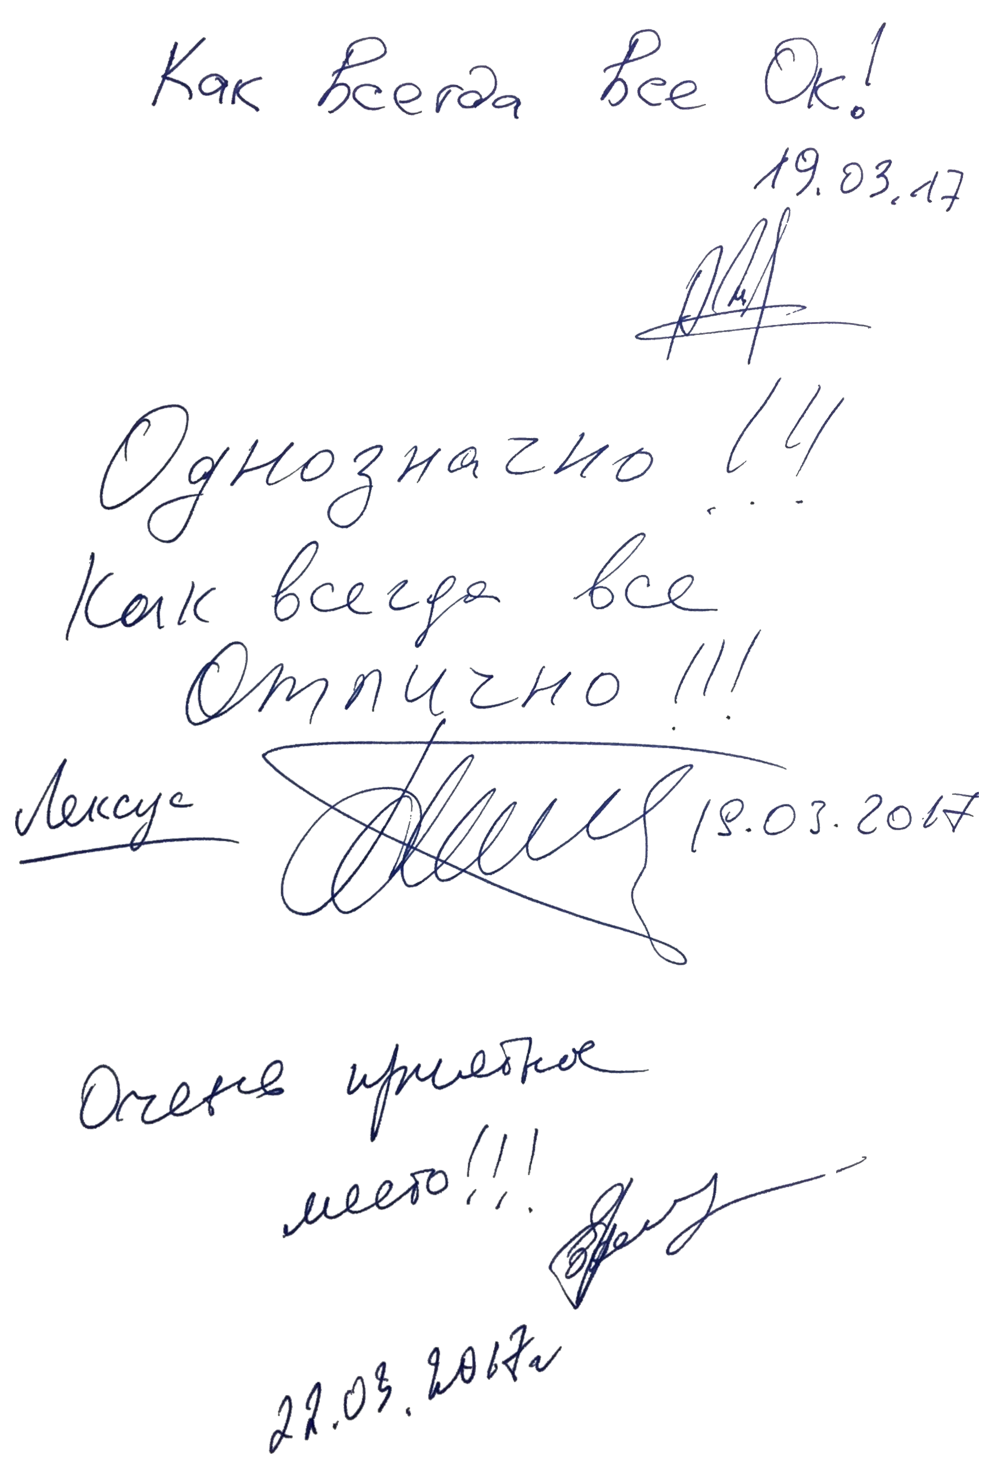 Как всегда все Ок!
19.03.17
Однозначно !!!
Как всегда все
Отлично !!!
Лексус
19.03.2017
Очень приятное
место!!!
22.03.2017г